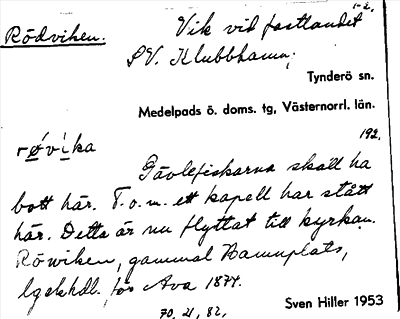 1-2.
Rödviken. Vik vid fastlandet
SV. Klubbhamn;
Tynderö sn.
Medelpads ö. doms. tg, Västernorrl. län.
192.
røvika
Gävlefiskarna skall ha
bott här. T.o.m. ett kapell har stått
här. Detta är nu flyttat till kyrkan.
Röwiken, gammal Hamnplats,
lgskhdl. för Ava 1874.
70, 21, 82,
Sven Hiller 1953